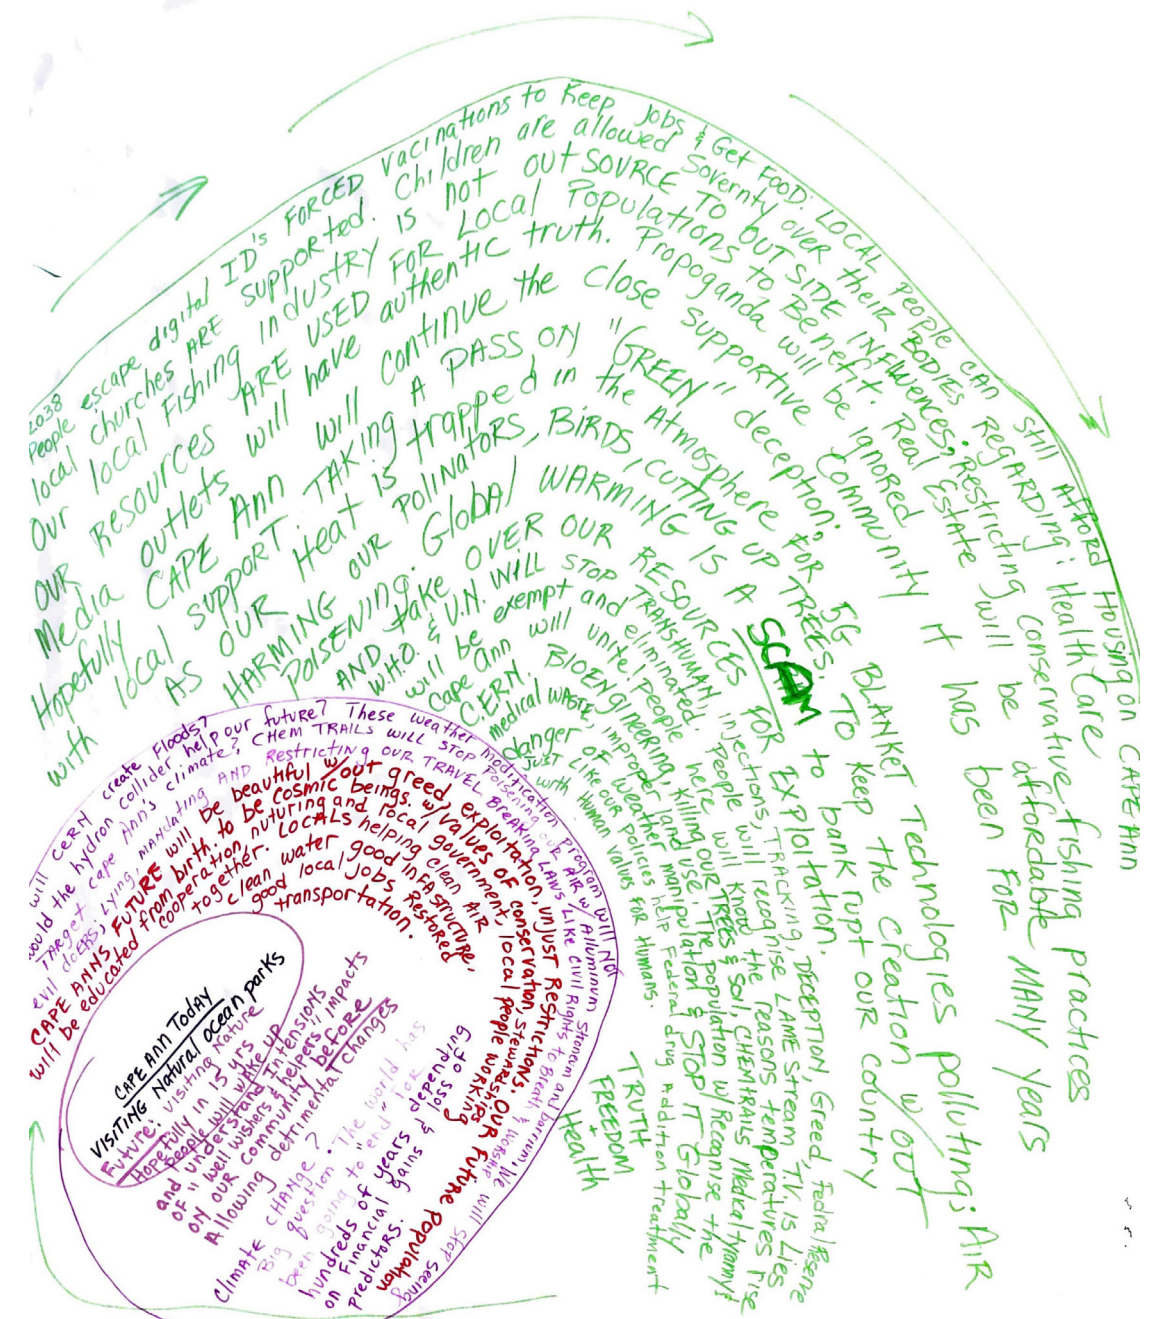 CAPE ANN TODAY
VISITING Natural ocean parks
Future: visiting Nature
Hopefully in 15 yrs
people will wake up
and understand Intensions
OF "well wishers & helpers" impacts
ON OUR community before
Allowing detrimental changes
CLIMATE CHANGE? The world has
Big question
been going to "end" for
hundreds of years depending
on Financial gains & loss of
predictors.
CAPE ANNS FUTURE will be beautiful w/out greed, exploitation, unjust RESTRICTIONS. OUR Future Population
will be educated from birth. to be cosmic beings. w/values of conservation, stewardship
cooperation nuturing and local government, local people working
together. LOCALS helping clean AIR
clean water good INFASTRUCTURE,
good local jobs Restored
transportation.
will CERN create Floods? These weather modification program will NOT
would the hydron collider help our future? CHEM TRAILS will STOP Poisening our AIR w/Alluminum Stroneum and barrium; We will stop seeing
TARGET Cape Ann's climate? AND Restricting OUR TRAVEL BREAKING LAWS Like Civil Rights to Breath & worship
evil doers, Lying, MANDATING
2038
People escape digital ID's FORCED vacinations to Keep jobs & Get FOOD. LOCAL People CAN still AFFORD HOUSING on CAPE ANN
local churches ARE supported. Children are allowed Sovernty over their BODIES REGARDING: Health Care
Our local Fishing industry is not outSOURCE TO OUTSIDE INFLUENCES, Restricting conservative fishing practices
OUR RESOURCES ARE USED FOR LOCAL Populations to Benefit. Real Estate will be affordable
Media outlets will have authentic truth. Propoganda will be ignored it has been FOR MANY years
Hopefully CAPE Ann will continue the close supportive community
with local support TAKING A PASS ON "GREEN" deception; 5G BLANKET Technologies polluting; AIR
AS OUR Heat is trapped in the Atmosphere FOR TREES TO Keep the creation w/OUT
HARMING OUR POLINATORS, BIRDS, CUTTING UP TREES to bankrupt our country
POISENING. Global WARMING IS A SCAM
AND take OVER OUR RESOURCES FOR EXPLOITATION.
W.H.O. & U.N. WILL STOP TRANSHUMAN injections, TRACKING, DECEPTION, Greed, Fedral Reserve
will be exempt and eliminated. People will recognise LAME Stream T.V. is Lies
Cape Ann will unite people here will know the reasons temperatures rise
C.E.R.N. BIOENGINEERING, killing our TREES & Soil, CHEMTRAILS Medical tyranny &
medical WASTE, improper land use. The population w/ Recognise the
danger OF weather manipulation & STOP IT Globally
JUST LIKE OUR policies help Federal drug addiction treatment
worth Human values for humans.
TRUTH
FREEDOM
+
Health